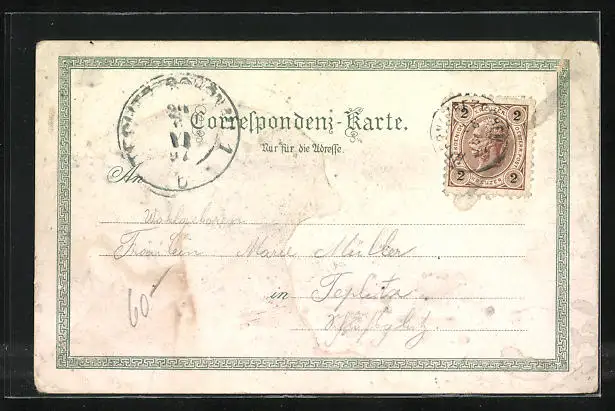 Correspondenz-Karte.
Nur für die Adresse.
An
2 2
KREUZER
2 2
Wohlgeboren
Fräulein Marie Müller
in Teplitz
60-